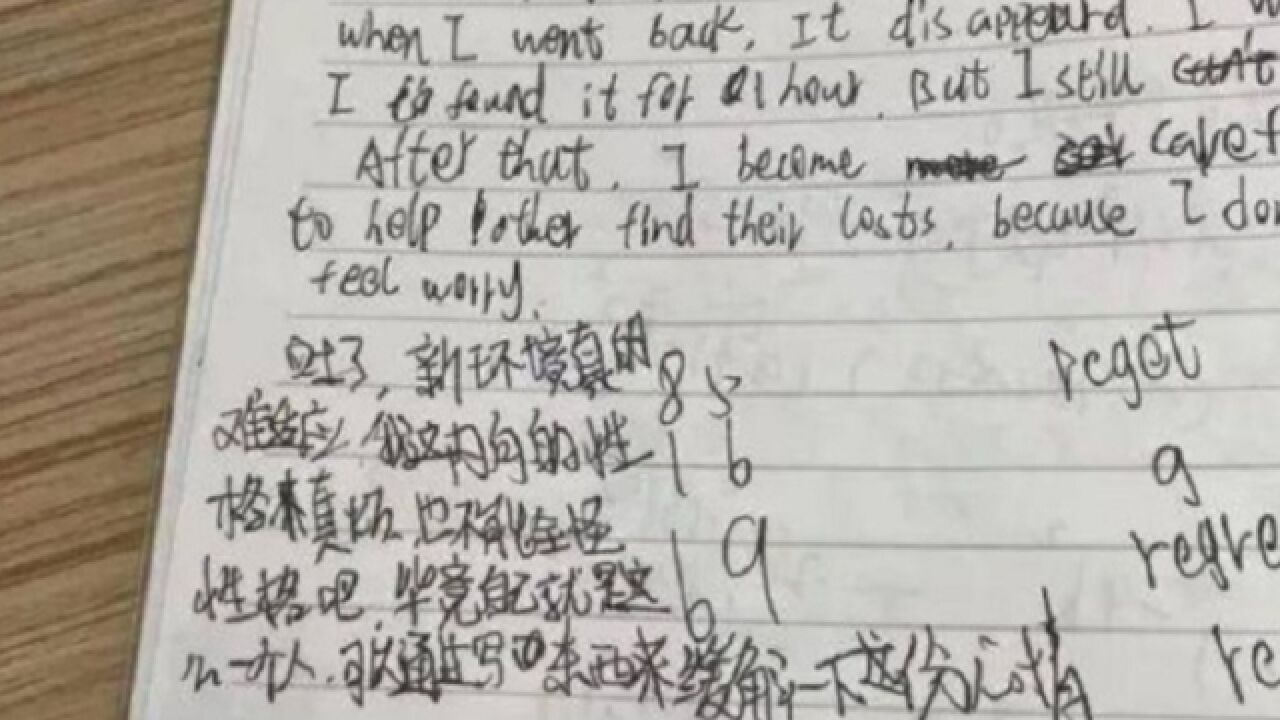 when I went back, It disappeard. I
I found it for 1 hour. But I still
After that, I become
to help other find their losts, because I
feel worry.
对了, 新环境真的 85 regot
难适应, 我这内向的性 16 g
格来真 也不能全怪 19
性格吧, 毕竟自己就是这 6
么一个人, 可以通过写 东西来缓解一下这份心情 re